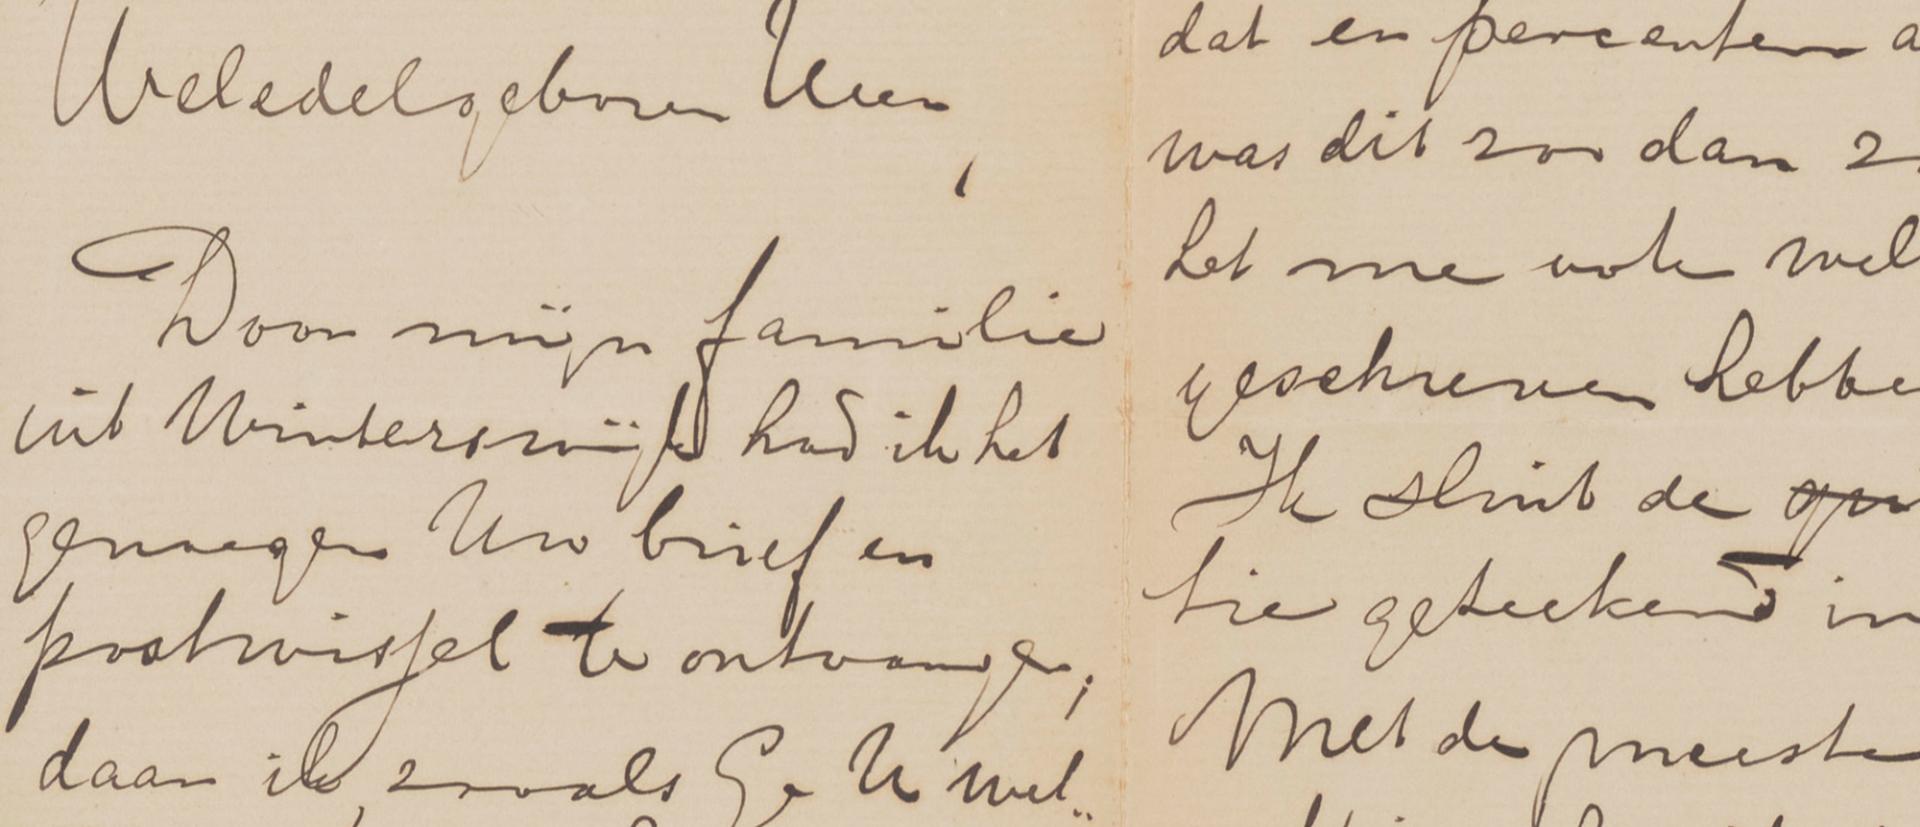 Weledelgeboren Heer
,
Door mijn familie
uit Winterswijk had ik het
genoegen Uw brief en
postwissel te ontvangen;
daar ik, zooals Ge U wel
dat en percenten a
was dit zoo dan z
het me ook wel
geschreven hebbe
Ik sluit de
tie geteekend in
Met de meeste